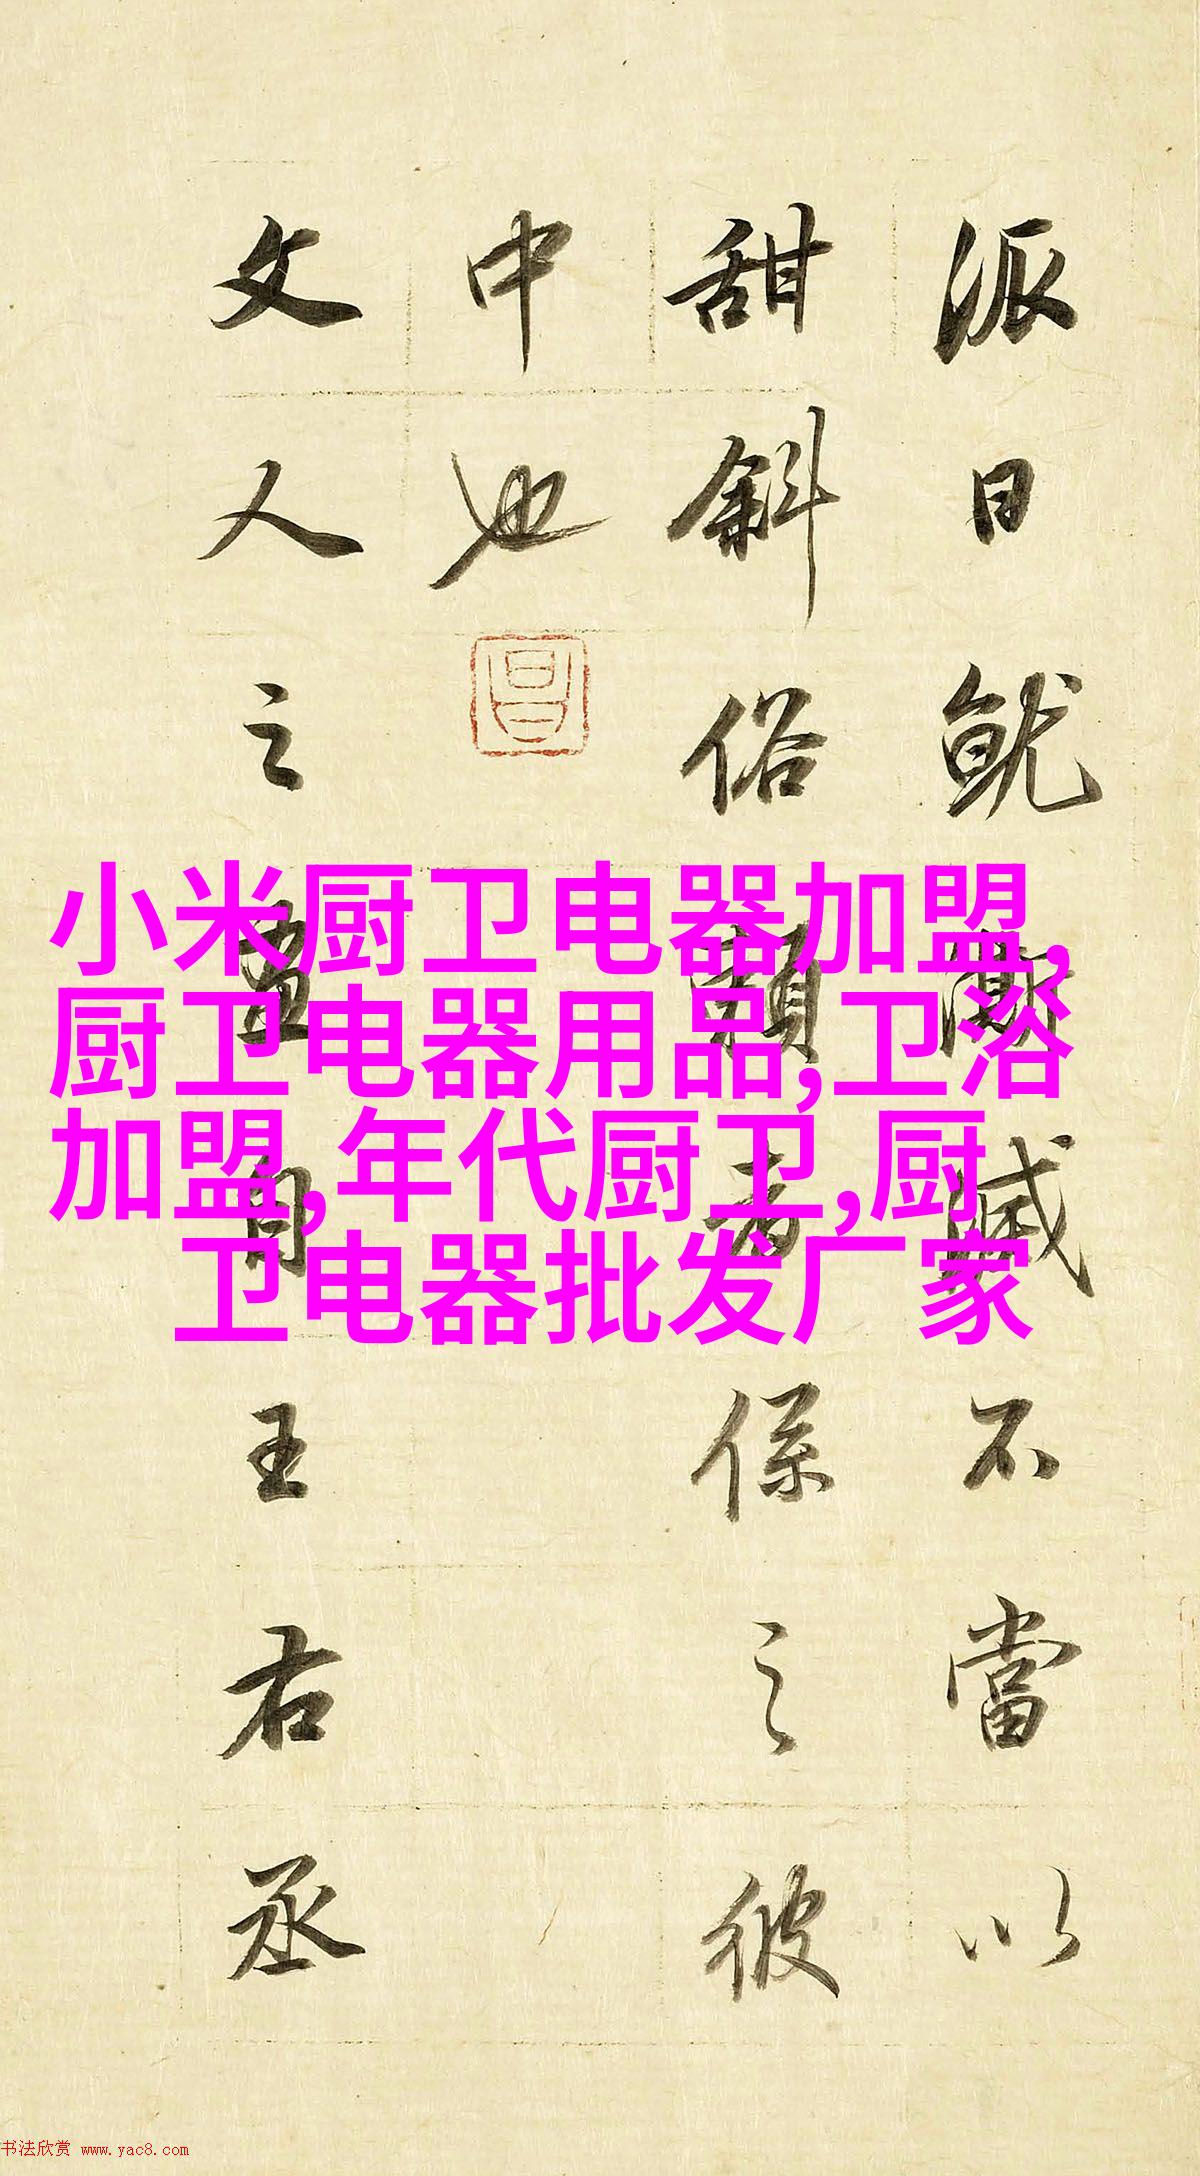 派日就澌滅不當以
甜斜俗賴者係之彼
中也
昌
文人之畫自王右丞
小米厨卫电器加盟,
厨卫电器用品,卫浴
加盟,年代厨卫,厨
卫电器批发厂家
书法欣赏 www.yac8.com